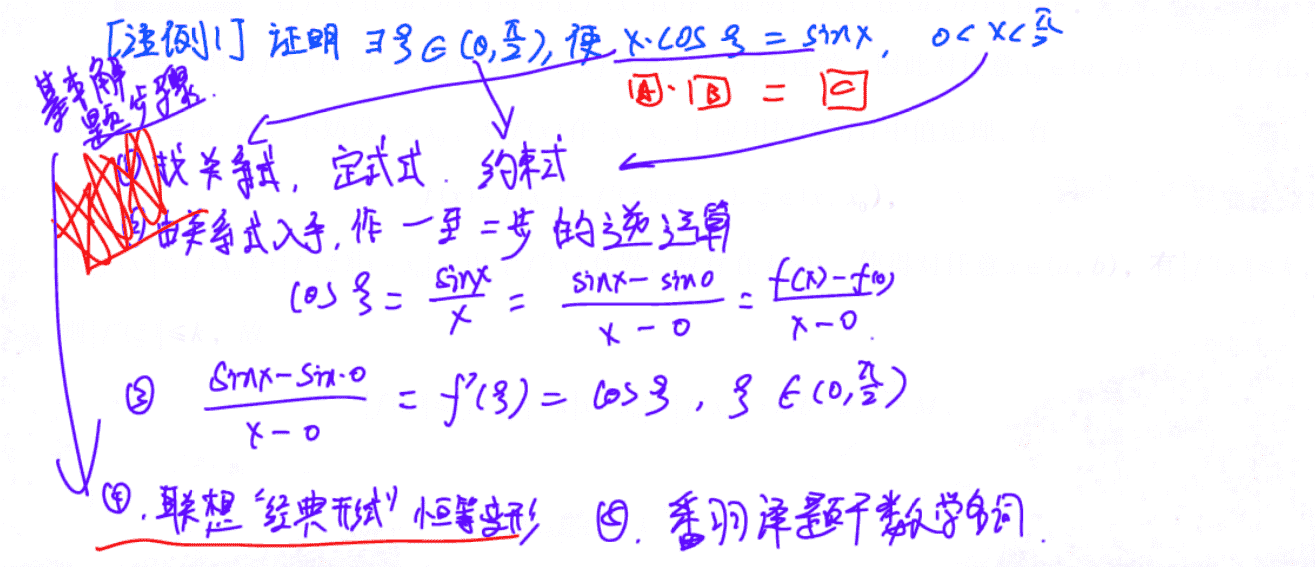 [注例1] 证明 ∃ξ∈(0,π/2), 使 x·cos ξ = sinx, 0<x<π/2
A · B = C
基本解
题步骤.
①找关系式, 定式式. 约束式
②由关系式入手, 作一至二步的逆运算
cos ξ = sinx/x = (sinx-sin0)/(x-0) = (f(x)-f(0))/(x-0).
③ (sinx-sin·0)/(x-0) = f'(ξ) = cos ξ, ξ∈(0,π/2)
④. 联想“经典形式”恒等变形 ⑤. 翻译题干数学名词.